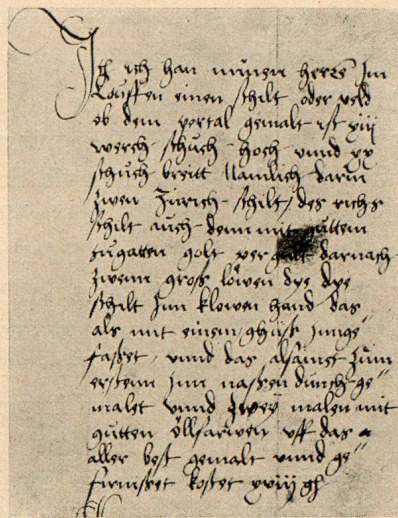 Ich han minen herrē Im
Louffen einen schilt oder veld
ob dem portal gemalt ist xiiij
werch schuch hoch vnnd xx
schuch breitt Namlich darin
zwen Zürich schilt / des richs
schilt auch denn mit guttem
tugatten golt vergült darnach
zwenn gross löwen dye dye
schilt Inn klowen hand das
als mit einem ghüsk Inngeʺ
fasset / vnnd das alsamet zum
erstenn Inn nassen dürch geʺ
malet vnnd zwey malen mit
gutten öllfarwen vff das
aller best gemalt vnnd geʺ
firnisset kostet xviij gl